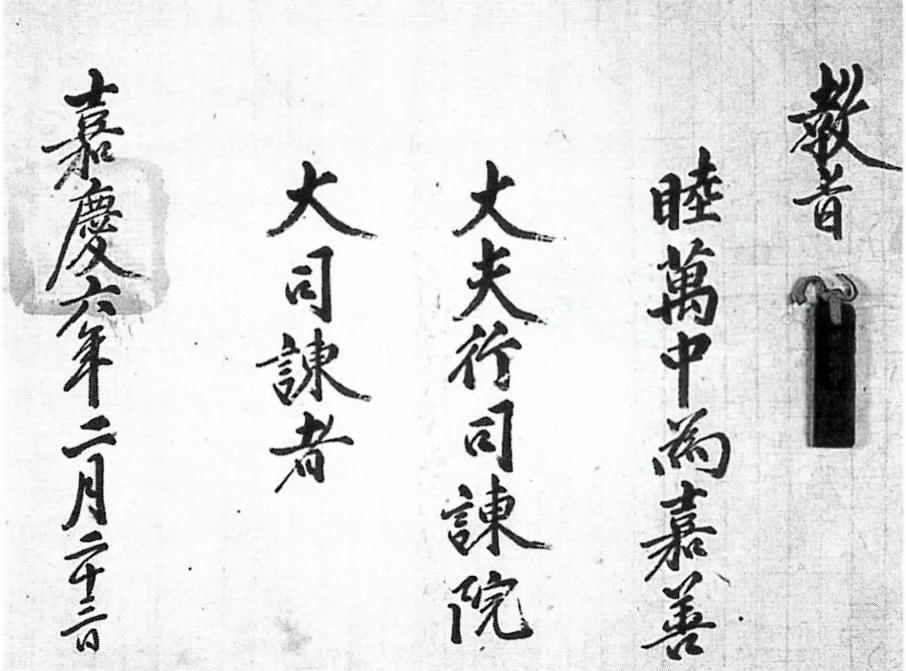 教旨
睦萬中為嘉善
大夫行司諫院
大司諫者
嘉慶六年二月二十三日